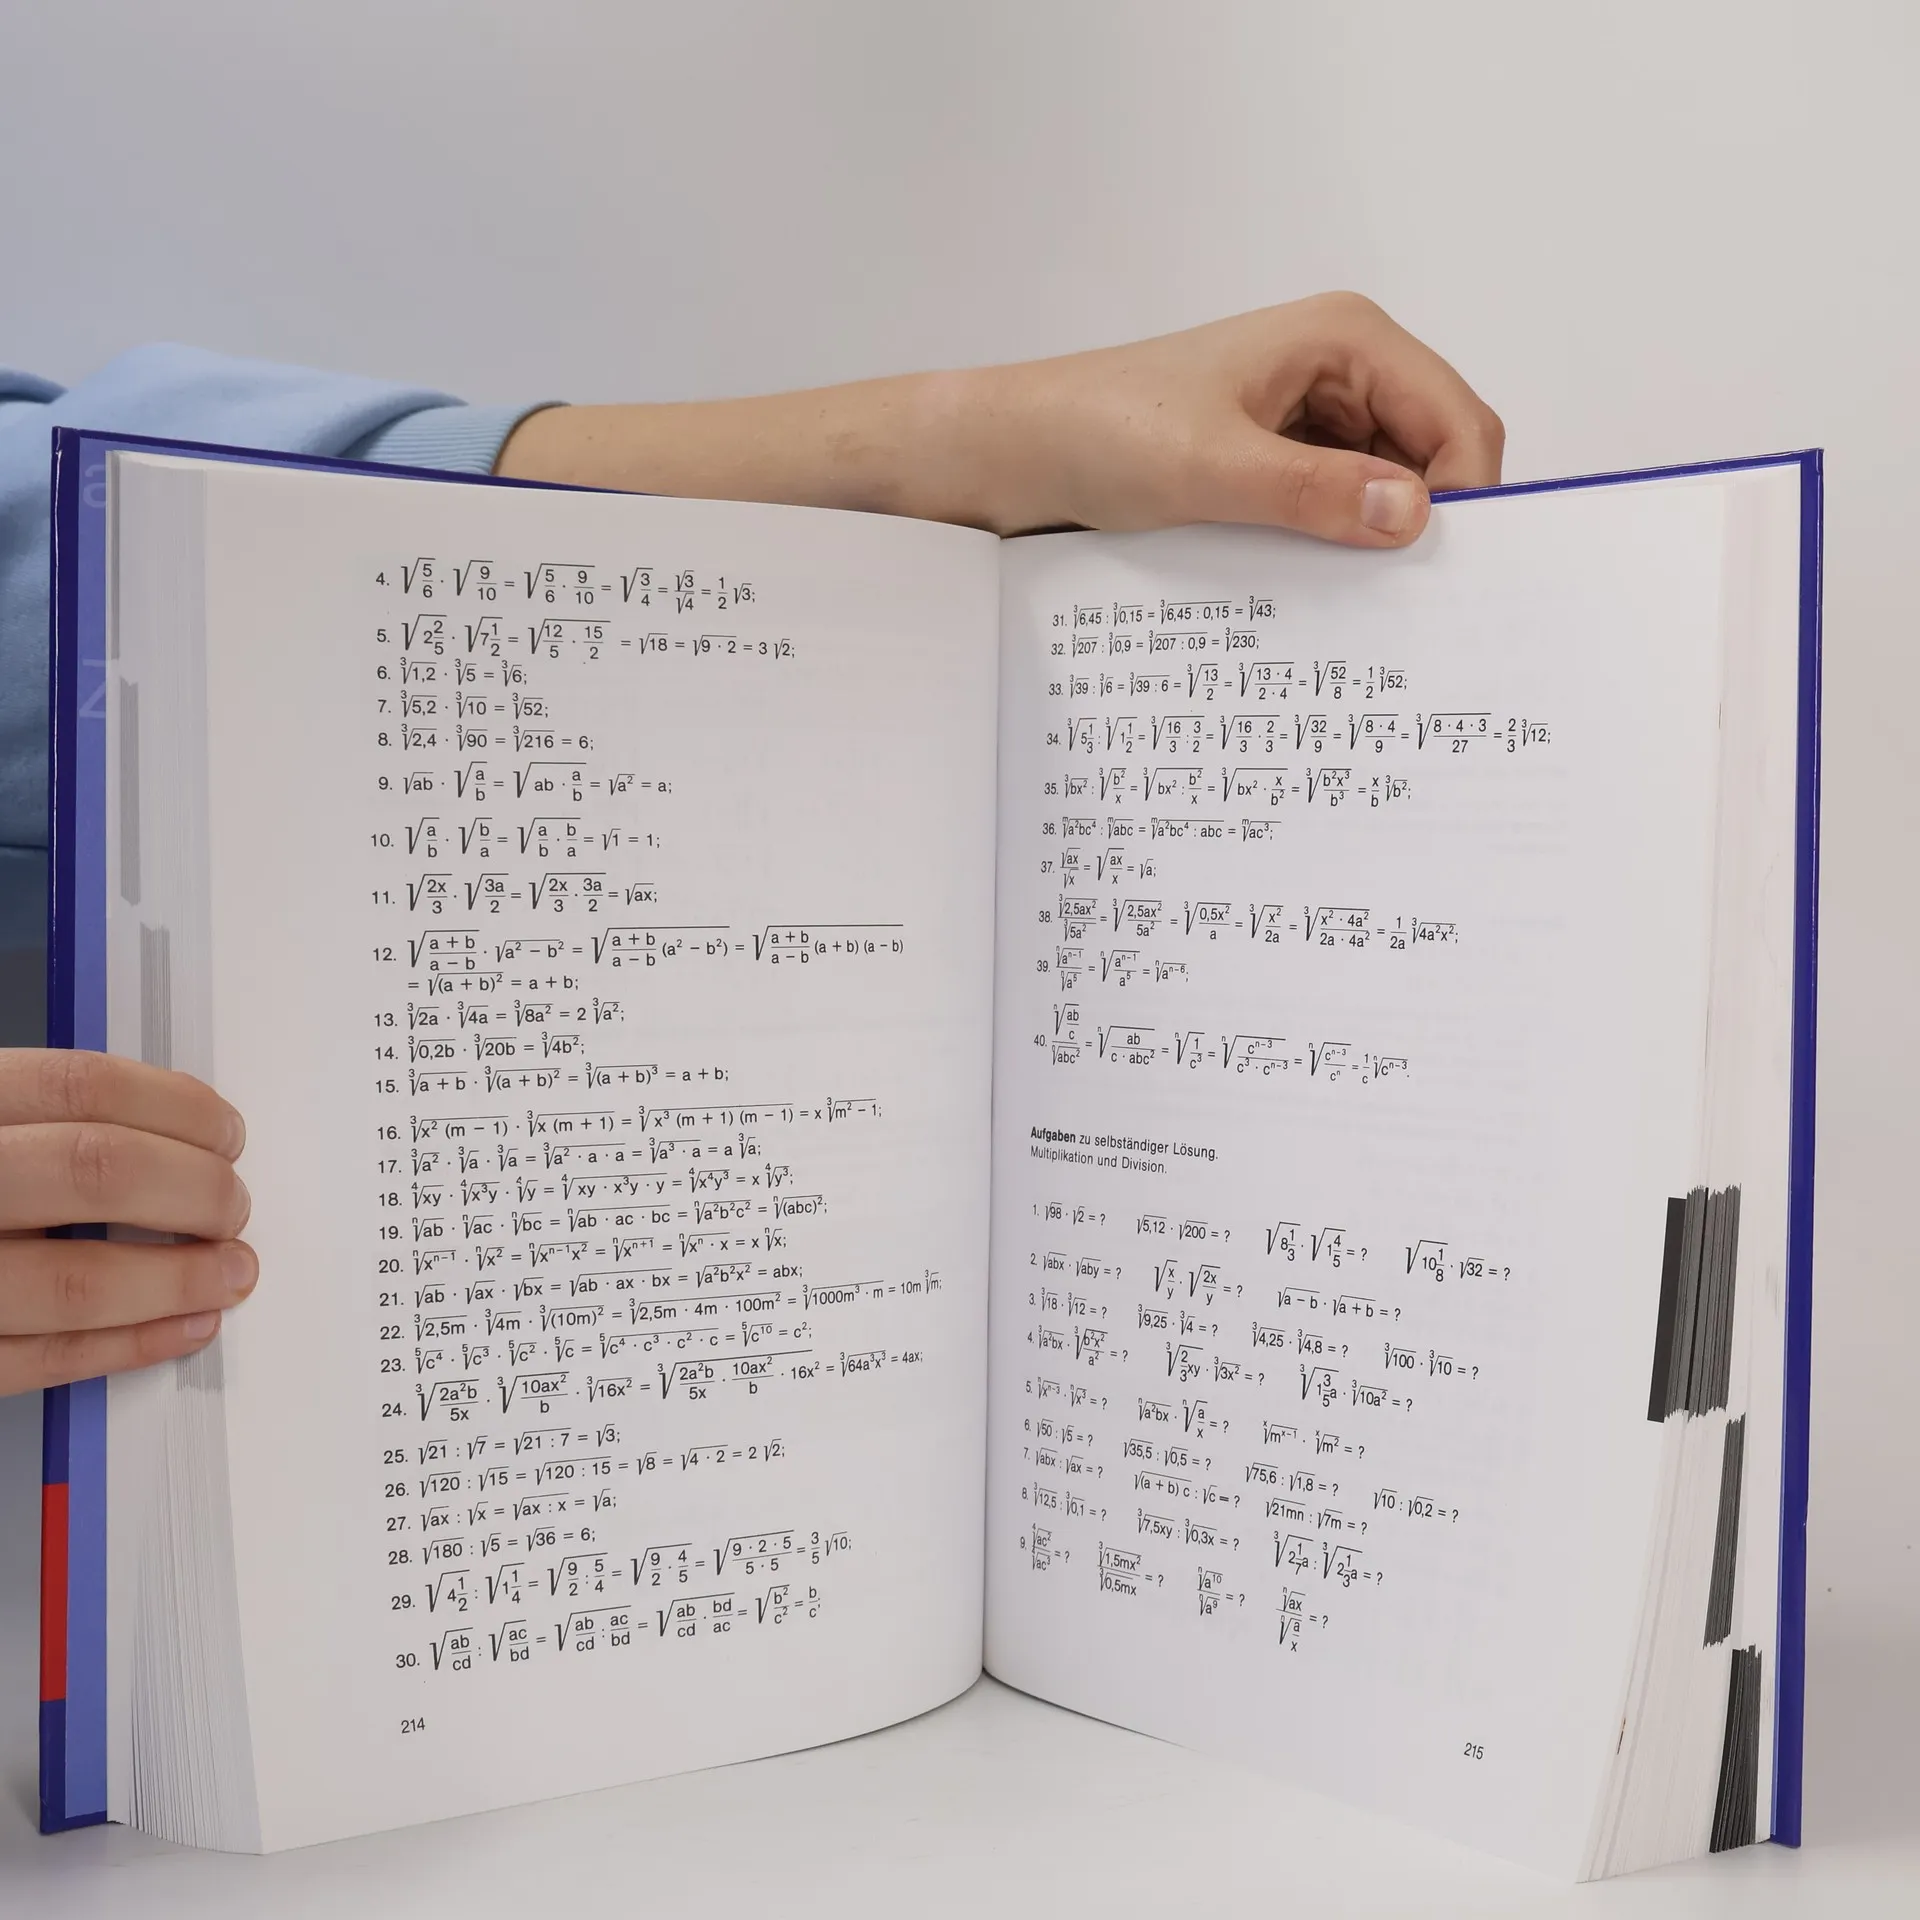 4. √(5/6) · √(9/10) = √(5/6 · 9/10) = √(3/4) = √3/√4 = 1/2 √3;
5. √(2 2/5) · √(7 1/2) = √(12/5 · 15/2) = √18 = √(9 · 2) = 3 √2;
6. ³√1,2 · ³√5 = ³√6;
7. ³√5,2 · ³√10 = ³√52;
8. ³√2,4 · ³√90 = ³√216 = 6;
9. √ab · √(a/b) = √(ab · a/b) = √a² = a;
10. √(a/b) · √(b/a) = √(a/b · b/a) = √1 = 1;
11. √(2x/3) · √(3a/2) = √(2x/3 · 3a/2) = √ax;
12. √((a + b)/(a − b)) · √(a² − b²) = √((a + b)/(a − b) (a² − b²)) = √((a + b)/(a − b) (a + b) (a − b))
= √(a + b)² = a + b;
13. ³√2a · ³√4a = ³√8a² = 2 ³√a²;
14. ³√0,2b · ³√20b = ³√4b²;
15. ³√(a + b) · ³√(a + b)² = ³√(a + b)³ = a + b;
16. ³√(x² (m − 1)) · ³√(x (m + 1)) = ³√(x³ (m + 1) (m − 1)) = x ³√(m² − 1);
17. ³√a² · ³√a · ³√a = ³√(a² · a · a) = ³√(a³ · a) = a ³√a;
18. ⁴√xy · ⁴√x³y · ⁴√y = ⁴√(xy · x³y · y) = ⁴√x⁴y³ = x ⁴√y³;
19. ⁿ√ab · ⁿ√ac · ⁿ√bc = ⁿ√(ab · ac · bc) = ⁿ√a²b²c² = ⁿ√(abc)²;
20. ⁿ√xⁿ⁻¹ · ⁿ√x² = ⁿ√xⁿ⁻¹x² = ⁿ√xⁿ⁺¹ = ⁿ√(xⁿ · x) = x ⁿ√x;
21. √ab · √ax · √bx = √(ab · ax · bx) = √a²b²x² = abx;
22. ³√2,5m · ³√4m · ³√(10m)² = ³√(2,5m · 4m · 100m²) = ³√(1000m³ · m) = 10m ³√m;
23. ⁵√c⁴ · ⁵√c³ · ⁵√c² · ⁵√c = ⁵√(c⁴ · c³ · c² · c) = ⁵√c¹⁰ = c²;
24. ³√(2a²b/5x) · ³√(10ax²/b) · ³√16x² = ³√(2a²b/5x · 10ax²/b · 16x²) = ³√64a³x³ = 4ax;
25. √21 : √7 = √(21 : 7) = √3;
26. √120 : √15 = √(120 : 15) = √8 = √(4 · 2) = 2 √2;
27. √ax : √x = √(ax : x) = √a;
28. √180 : √5 = √36 = 6;
29. √(4 1/2) : √(1 1/4) = √(9/2 : 5/4) = √(9/2 · 4/5) = √((9 · 2 · 5)/(5 · 5)) = 3/5 √10;
30. √(ab/cd) : √(ac/bd) = √(ab/cd : ac/bd) = √(ab/cd · bd/ac) = √(b²/c²) = b/c;
214
31. ³√6,45 : ³√0,15 = ³√(6,45 : 0,15) = ³√43;
32. ³√207 : ³√0,9 = ³√(207 : 0,9) = ³√230;
33. ³√39 : ³√6 = ³√(39 : 6) = ³√(13/2) = ³√((13 · 4)/(2 · 4)) = ³√(52/8) = 1/2 ³√52;
34. ³√(5 1/3) : ³√(1 1/2) = ³√(16/3 : 3/2) = ³√(16/3 · 2/3) = ³√(32/9) = ³√((8 · 4)/9) = ³√((8 · 4 · 3)/27) = 2/3 ³√12;
35. ³√bx² : ³√(b²/x) = ³√(bx² : b²/x) = ³√(bx² · x/b²) = ³√(b²x³/b³) = x/b ³√b²;
36. ᵐ√a²bc⁴ : ᵐ√abc = ᵐ√(a²bc⁴ : abc) = ᵐ√ac³;
37. √ax/√x = √(ax/x) = √a;
38. ³√2,5ax²/³√5a² = ³√(2,5ax²/5a²) = ³√(0,5x²/a) = ³√(x²/2a) = ³√((x² · 4a²)/(2a · 4a²)) = 1/2a ³√4a²x²;
39. ⁿ√aⁿ⁻¹/ⁿ√a⁵ = ⁿ√(aⁿ⁻¹/a⁵) = ⁿ√aⁿ⁻⁶;
40. ⁿ√(ab/c)/ⁿ√abc² = ⁿ√(ab/(c · abc²)) = ⁿ√(1/c³) = ⁿ√(cⁿ⁻³/(c³ · cⁿ⁻³)) = ⁿ√(cⁿ⁻³/cⁿ) = 1/c ⁿ√cⁿ⁻³.
Aufgaben zu selbständiger Lösung.
Multiplikation und Division.
1. √98 · √2 = ? √5,12 · √200 = ? √(8 1/3) · √(1 4/5) = ? √(10 1/8) · √32 = ?
2. √abx · √aby = ? √(x/y) · √(2x/y) = ? √(a − b) · √(a + b) = ?
3. ³√18 · ³√12 = ? ³√9,25 · ³√4 = ? ³√4,25 · ³√4,8 = ? ³√100 · ³√10 = ?
4. ³√a²bx · ³√(b²x²/a²) = ? ³√(2/3 xy) · ³√3x² = ? ³√(1 3/5 a) · ³√10a² = ?
5. ⁿ√xⁿ⁻³ · ⁿ√x³ = ? ⁿ√a²bx · ⁿ√(a/x) = ? ˣ√mˣ⁻¹ · ˣ√m² = ?
6. √50 : √5 = ? √35,5 : √0,5 = ? √75,6 : √1,8 = ? √10 : √0,2 = ?
7. √abx : √ax = ? √((a + b) c) : √c = ? √21mn : √7m = ?
8. ³√12,5 : ³√0,1 = ? ³√7,5xy : ³√0,3x = ? ³√(2 1/7 a) : ³√(2 1/3 a) = ?
9. ⁴√ac²/⁴√ac³ = ? ³√1,5mx²/³√0,5mx = ? ⁿ√a¹⁰/ⁿ√a⁹ = ? ⁿ√ax/ⁿ√(a/x) = ?
215